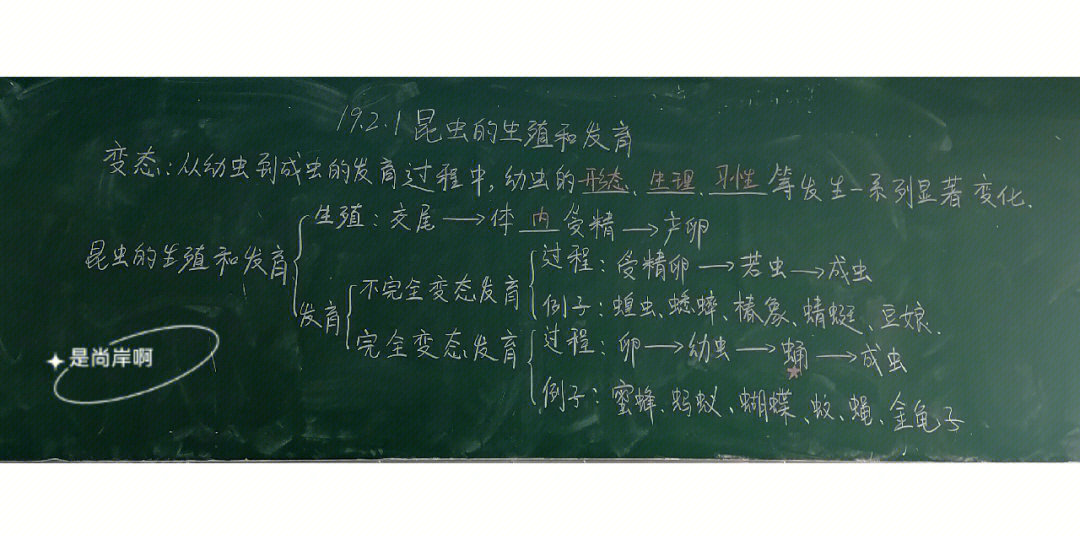 19.2.1 昆虫的生殖和发育
变态:从幼虫到成虫的发育过程中,幼虫的形态、生理、习性等发生一系列显著变化.
生殖:交尾→体内受精→产卵
昆虫的生殖和发育
过程:受精卵→若虫→成虫
不完全变态发育
例子:蝗虫、蟋蟀、椿象、蜻蜓、豆娘.
发育
完全变态发育
过程:卵→幼虫→蛹→成虫
例子:蜜蜂、蚂蚁、蝴蝶、蚊、蝇、金龟子
是尚岸啊